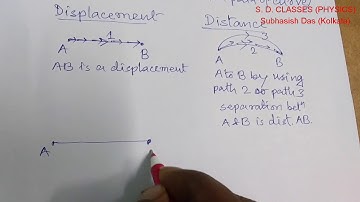 (path of curve)
S. D. CLASSES (PHYSICS)
Subhasish Das (Kolkata)
Displacement
1
A B
AB is a displacement
Distance
3
2
A B
A to B by using
path 2 or path 3
separation betn
A & B is dist. AB.
A